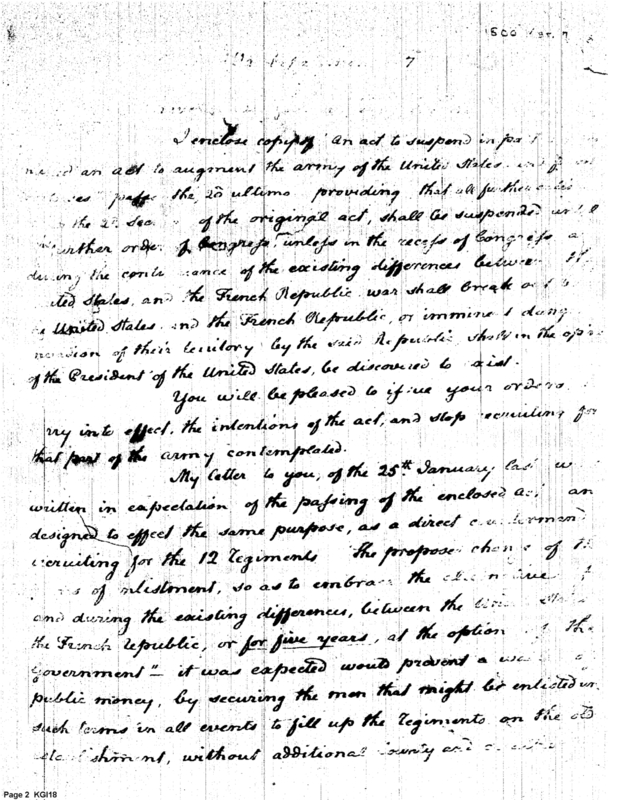 7
I enclose copy of an act to suspend in part
an act to augment the army of the United States
passed the 20 ultimo providing that all further
the 2d Sec of the original act, shall be suspended until
further order of Congress, unless in the recess of Congress a
during the continuance of the existing differences between
ted States, and the French Republic war shall break out
United States and the French Republic, or imminent dang
of their territory by the said Republic, shall in the opin
of the President of the United States, be discovered to exist.
You will be pleased to issue your orders
rry into effect, the intentions of the act, and stop recruiting for
that part of the army contemplated.
My letter to you, of the 25th January last
written in expectation of the passing of the enclosed Act an
designed to effect the same purpose, as a direct countermand
recruiting for the 12 regiments The proposed change of
of inlistment, so as to embrace the
and during the existing differences, between the
the French republic, or for five years, at the option of the
Government" it was expected would prevent a
public money, by securing the men that might be enlisted in
such terms in all events to fill up the regiments on the old
establishment, without additional bounty and
Page 2 KGI18